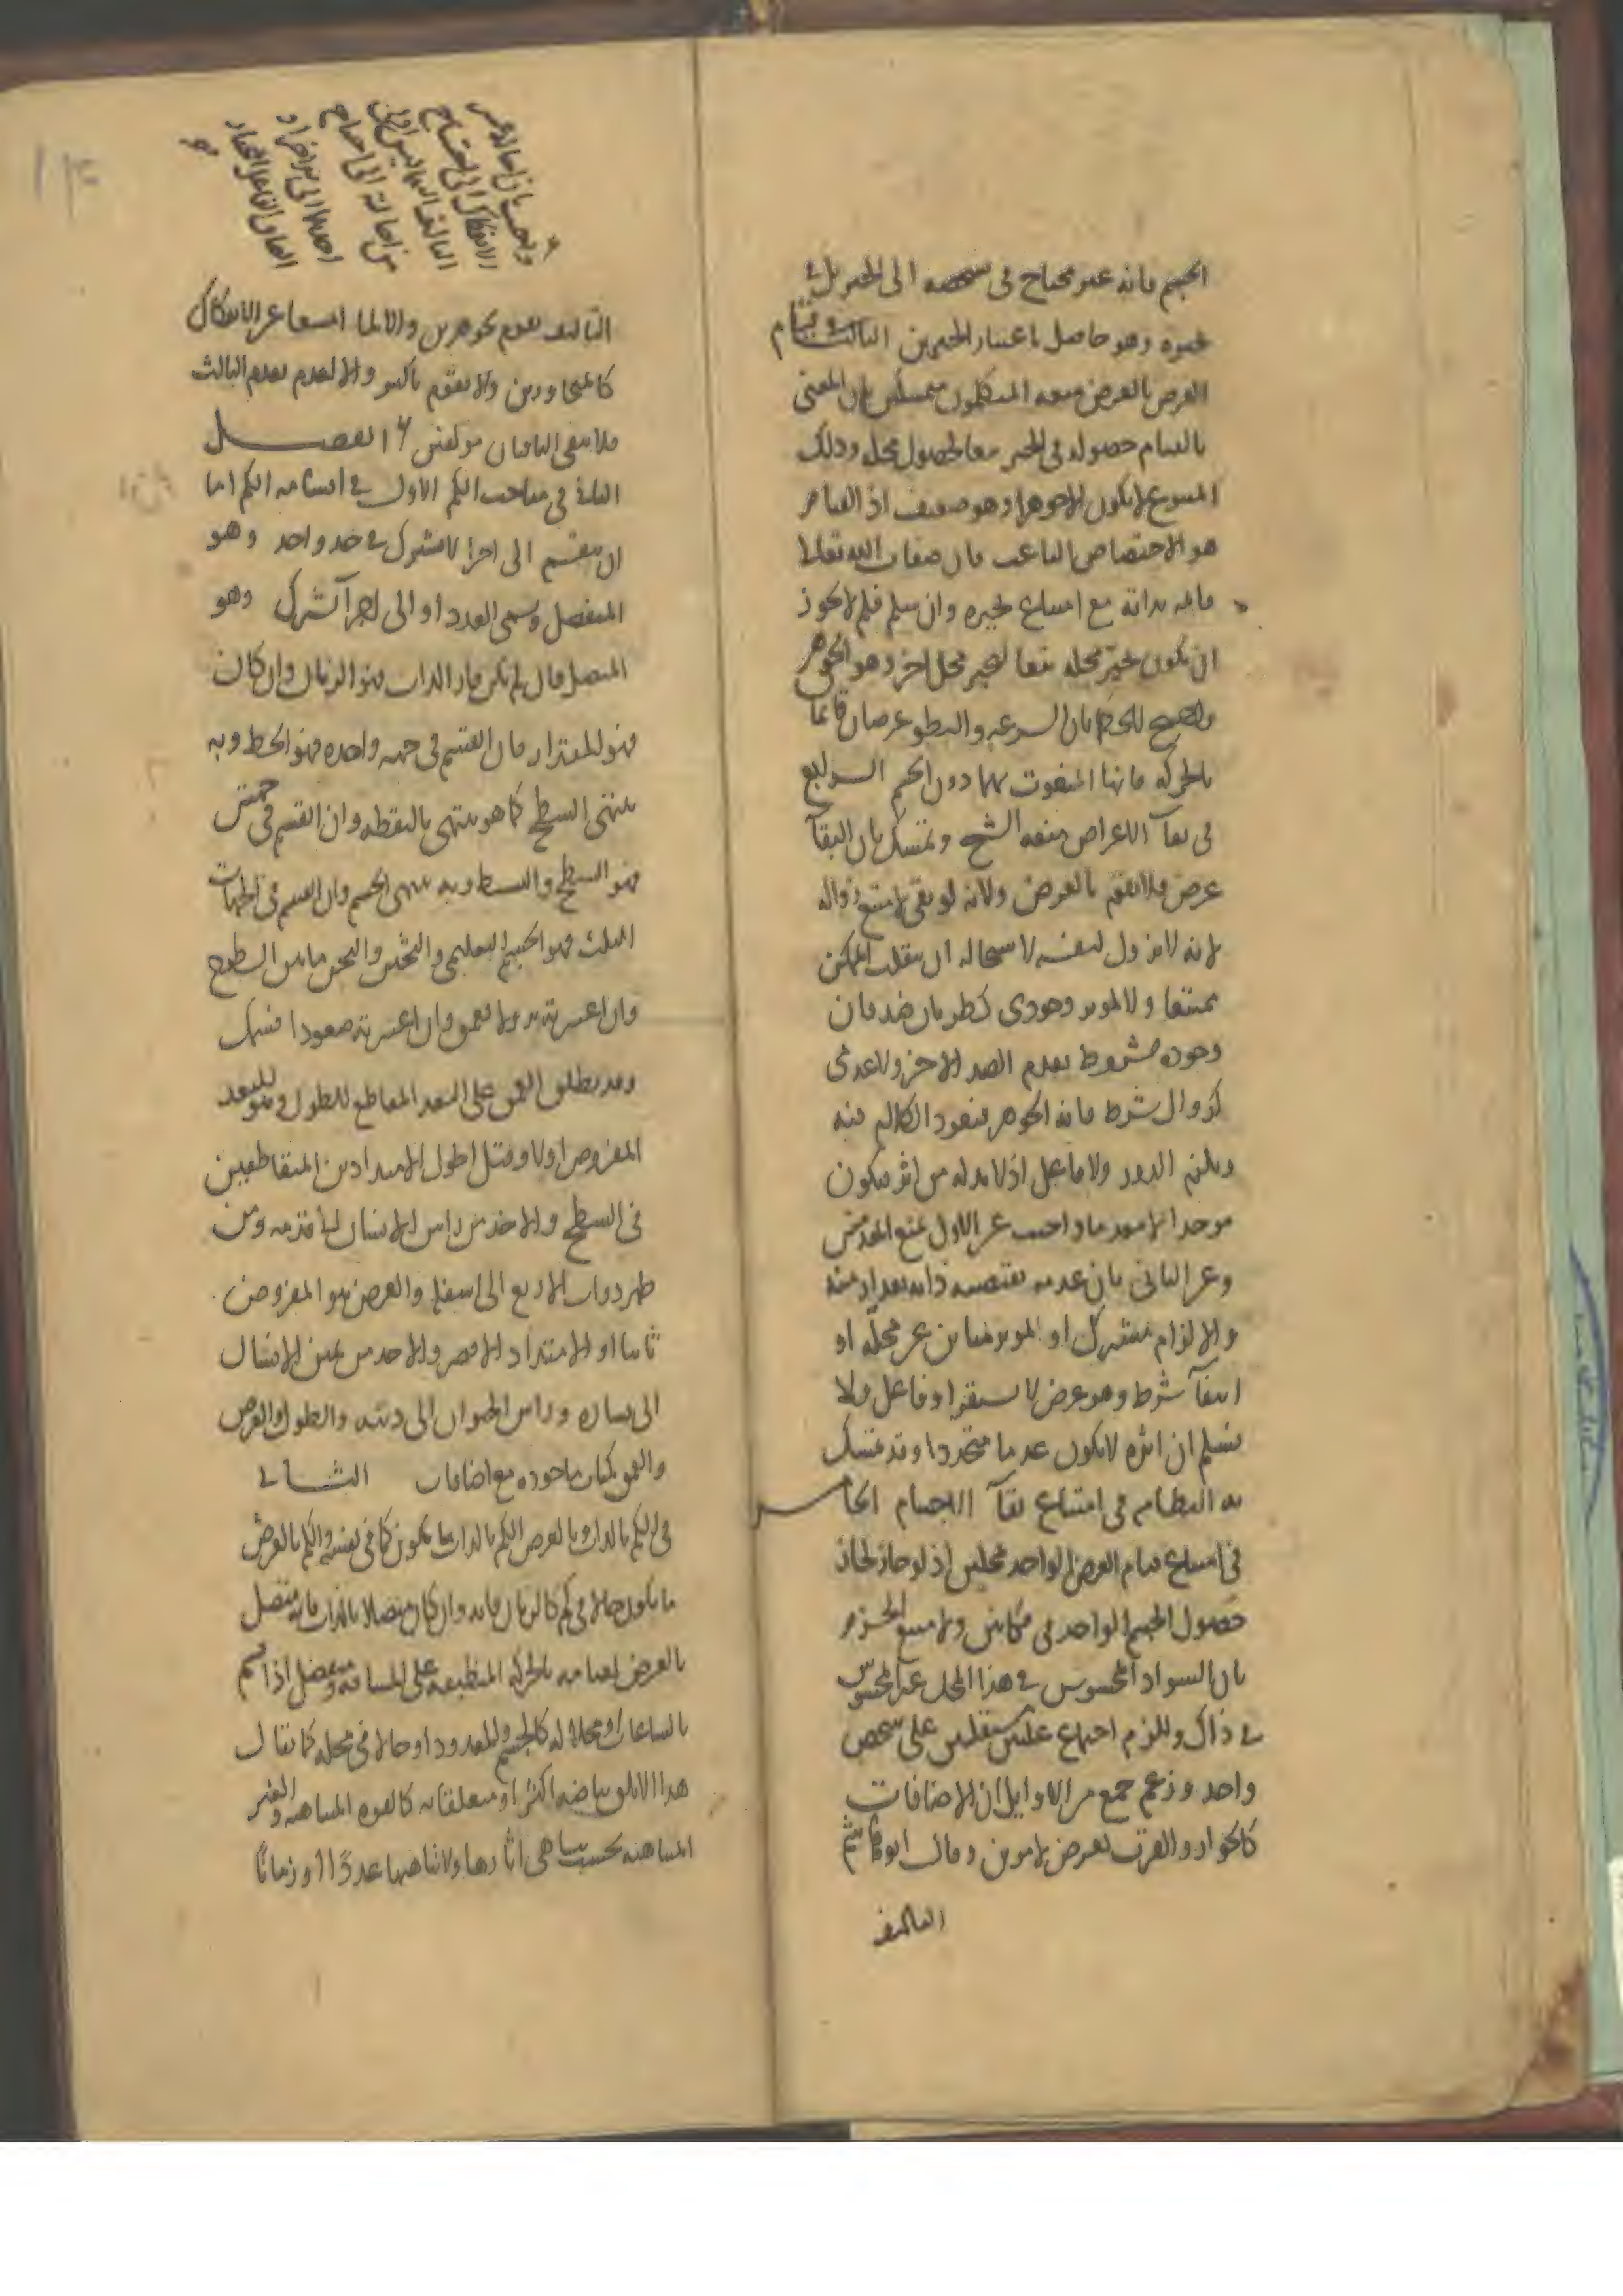 الجسم فانه غير محتاج في تشخصه الى الحيز بل في
تحيزه وهو حاصل باعتبار الحيزين الثالث في قيام
العرض بالعرض منعه المتكلمون متمسكين بان المعنى
بالقيام حصوله في الحيز تبعا لحصول محله وذلك
المتبوع لا يكون الا جوهرا وهو ضعيف اذ القيام
هو الاختصاص الناعت فان صفات الله تعالى
قائمة بذاته مع امتناع تحيزه وان سلم فلم لا يجوز
ان يكون تحيز محله تبعا لتحيز محل اخر وهو الجوهر
واحتج الحكما بان السرعة والبطو عرضان قائما
بالحركة فانها المنعوت بهما دون الجسم الرابع
في بقآ الاعراض منعه الشيخ وتمسك بان البقآ
عرض فلا يقوم بالعرض ولانه لو بقي لامتنع زواله
لانه لا يزول لنفسه لاستحالة ان ينقلب الممكن
ممتنعا ولا لموثر وجودي كطريان ضد فان
وجوده مشروط بعدم الضد الاخر ولا عدمي
كزوال شرط فانه الجوهر فيعود الكلام فيه
ويلزم الدور ولا فاعل اذ لا بد له من اثر فيكون
موجدا لا معدما واجيب عن الاول بمنع المقدمتين
وعن الثاني بان عدمه يقتضيه ذاته بعد ازمنة
والالزام مشترك او الموثر مباين عن محله او
انتفآ شرط وهو عرض لا يستقر او فاعل ولا
نسلم ان اثره لا يكون عدما متجددا وقد تمسك
به النظام في امتناع بقآ الاجسام الخامس
في امتناع قيام العرض الواحد بمحلين اذ لو جاز لجاز
حصول الجسم الواحد في مكانين ولامتنع الجزم
بان السواد المحسوس في هذا المحل غير المحسوس
في ذاك وللزم اجتماع علتين مستقلتين على شخص
واحد وزعم جمع من الاوايل ان الاضافات
كالجوار والقرب تعرض لامرين وقال ابو هاشم
التاليف
التاليف يقوم بجوهرين والا لما امتنعا عن الانفكاك
كالمتجاورين ولا يقوم باكثر والا لعدم بعدم الثالث
فلا يبقى الباقيان مولفين الفصل
الثاني في مباحث الكم الاول في اقسامه الكم اما
ان ينقسم الى اجزا لا تشترك في حد واحد وهو
المنفصل ويسمى العدد او الى اجزآ تشترك وهو
المتصل فان لم يكن قار الذات فهو الزمان وان كان
فهو المقدار فان انقسم في جهة واحدة فهو الخط وبه
ينتهي السطح كما هو ينتهي بالنقطة وان انقسم في جهتين
فهو السطح والبسيط وبه ينتهي الجسم وان انقسم في الجهات
الثلث فهو الجسم التعليمي والثخين والثخن ما بين السطوح
وان اعتبرته نزولا فعمق وان اعتبرته صعودا فسمك
وقد يطلق العمق على البعد المقاطع للطول وهو للبعد
المفروض اولا وقيل اطول الامتدادين المتقاطعين
في السطح والاخذ من راس الانسان الى قدمه ومن
ظهر ذوات الاربع الى اسفله والعرض هو المفروض
ثانيا او الامتداد الاقصر والاخذ من يمين الانسان
الى يساره وراس الحيوان الى ذنبه والطول والعرض
والعمق كميات ماخوذة مع اضافات الثاني
في الكم بالذات وبالعرض الكم بالذات ما يكون كما في نفسه والكم بالعرض
ما يكون حالا في كم كالزمان فانه وان كان متصلا بالذات فانه متصل
بالعرض لقيامه بالحركة المنطبقة على المسافة ومنفصل اذا قسم
بالساعات او محلا له كالجسم والمعدود او حالا في محله كما يقال
هذا الابلق بياضه اكثر او متعلقا به كالقوة المتناهية والغير
المتناهية بحسب تناهي اثارها ولا تناهيها عددا او زمانا